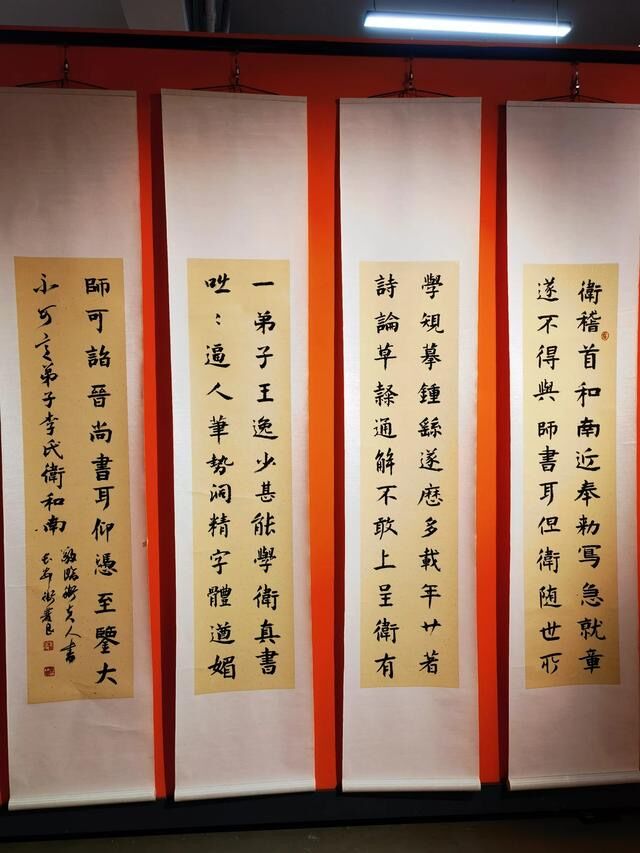 衛稽首和南近奉勅寫急就章
遂不得與師書耳但衛随世所
學規摹鍾繇遂歷多載年廿著
詩論草隸通解不敢上呈衛有
一弟子王逸少甚能學衛真書
咄〻逼人筆勢洞精字體遒媚
師可詣晉尚書耳仰憑至鑒大
不可言弟子李氏衛和南
敬臨衛夫人書